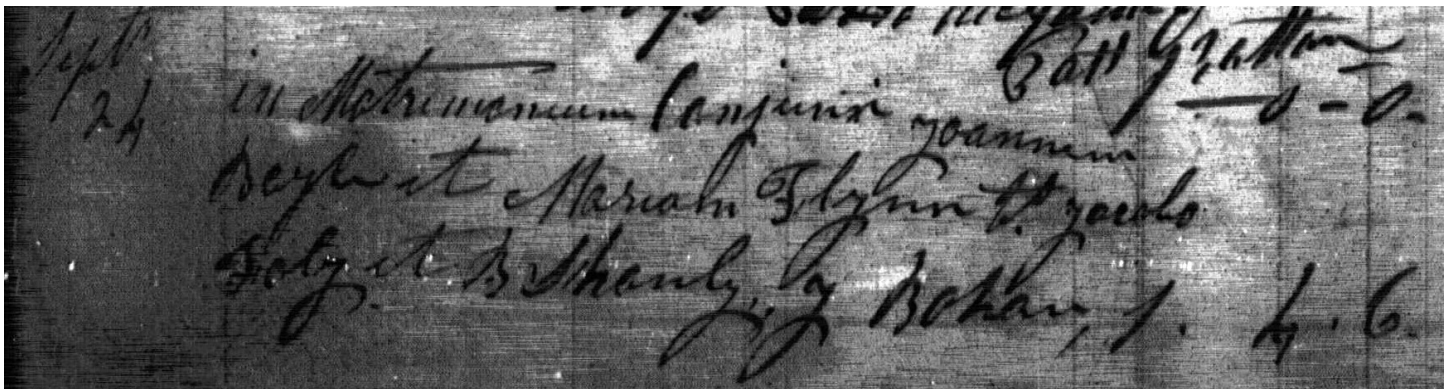 Patt Grattan
Sept 0 - 0.
24 in Matrimonium Conjunxi Joannem
Boyle et Mariam Flynn Tt. Jacobo
Foly et B Shanly, J Bohan, 1. 4. 6.